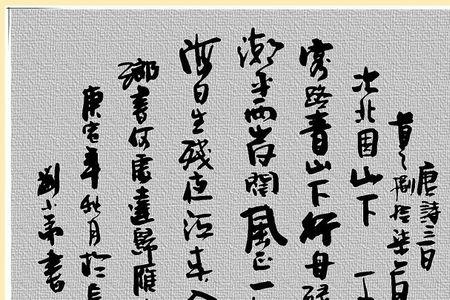 唐詩三百
首之捌拾柒
次北固山下
客路青山下行舟綠
潮平兩岸闊風正一
海日生殘夜江春入
鄉書何處達歸雁
庚寅年秋月於
劉小書